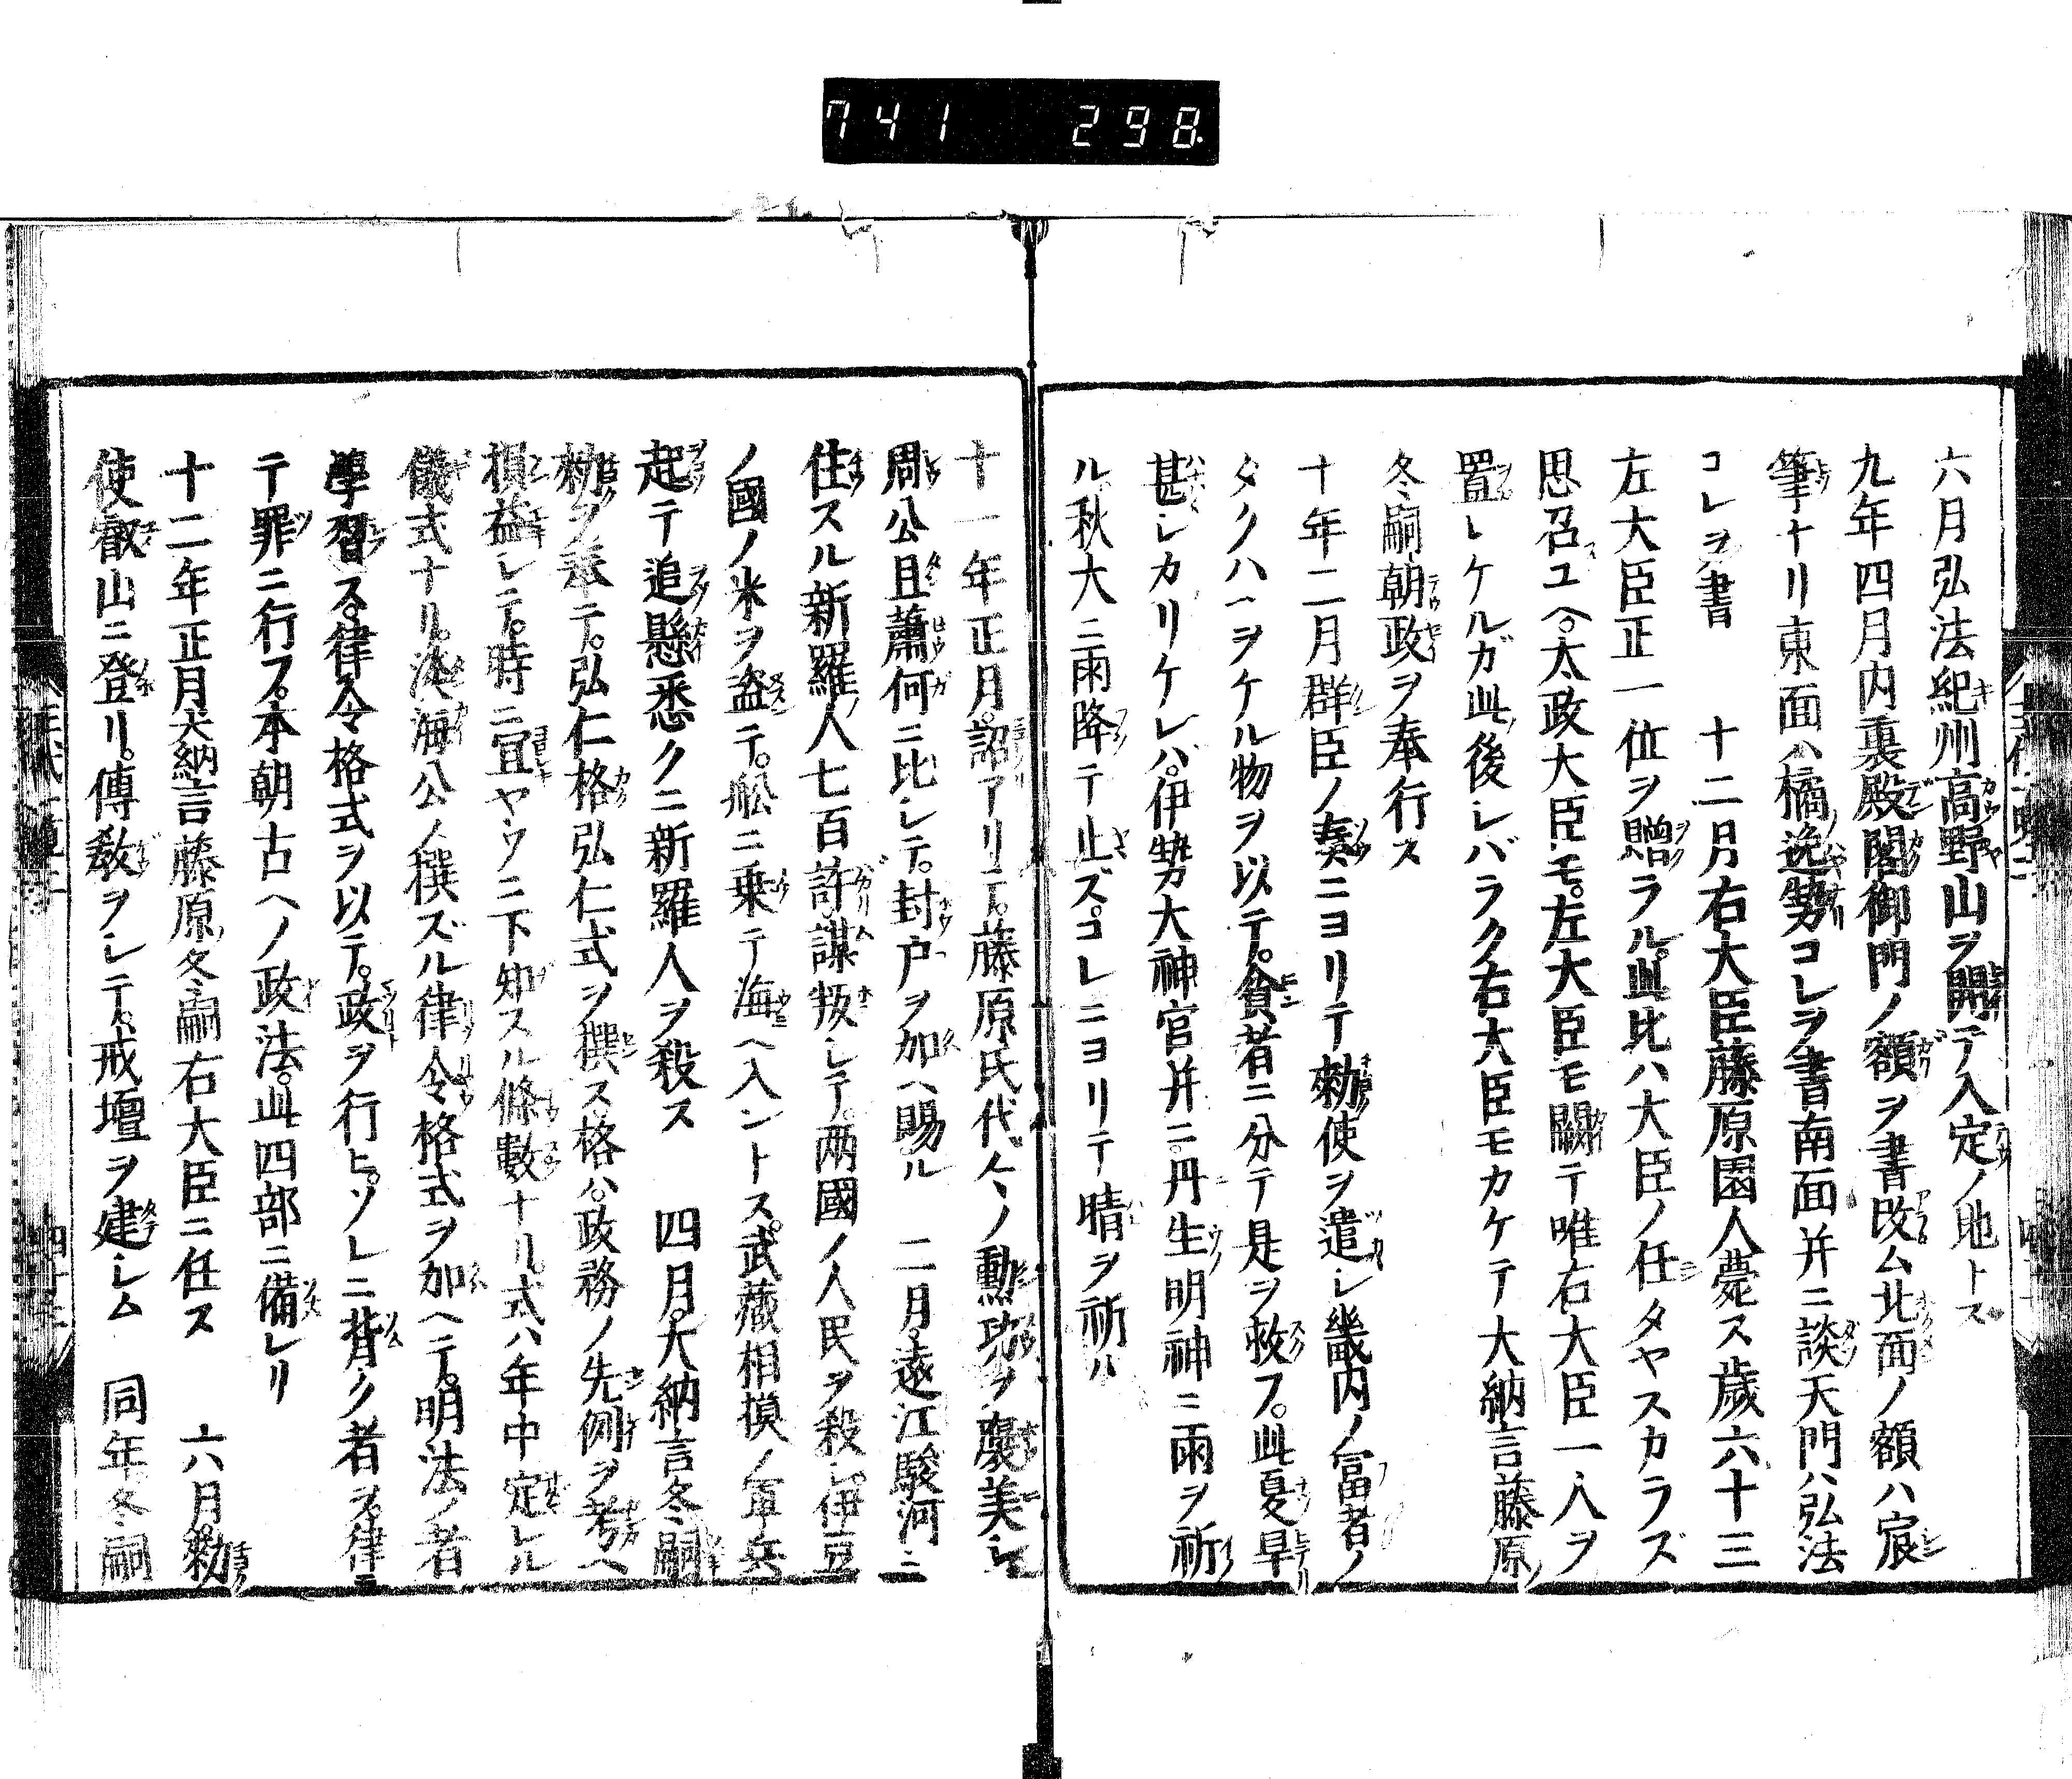 741 298
六月弘法紀州高野山ヲ開テ入定ノ地トス
九年四月内裏殿閣御門ノ額ヲ書改ム北面ノ額ハ宸
筆ナリ東面ハ橘逸勢コレヲ書南面并ニ談天門ハ弘法
コレヲ書　十二月右大臣藤原園人薨ス歳六十三
左大臣正一位ヲ贈ラル此比ハ大臣ノ任タヤスカラズ
思召ユヘ太政大臣モ左大臣モ闕テ唯右大臣一人ヲ
置レケルガ此後シバラク右大臣モカケテ大納言藤原
冬嗣朝政ヲ奉行ス
十年二月群臣ノ奏ニヨリテ勅使ヲ遣シ畿内ノ冨者ノ
タクハヘヲケル物ヲ以テ貧者ニ分テ是ヲ救フ此夏旱
甚シカリケレバ伊勢大神官并ニ丹生明神ニ雨ヲ祈
ル秋大ニ雨降テ止ズコレニヨリテ晴ヲ祈ル
十一年正月詔アリテ藤原氏代々ノ勲功ヲ褒美シ
周公旦蕭何ニ比シテ封戸ヲ加ヘ賜ル　二月遠江駿河ニ
住スル新羅人七百許謀叛シテ两國ノ人民ヲ殺シ伊豆
ノ國ノ米ヲ盗テ舩ニ乗テ海ヘ入ントス武蔵相摸ノ軍兵
起テ追懸悉クニ新羅人ヲ殺ス　四月大納言冬嗣
勅ヲ奉テ弘仁格弘仁式ヲ撰ス格ハ政務ノ先例ヲ考ヘ
損益シテ時ニ宜ヤウニ下知スル條數ナリ式ハ年中定レル
儀式ナリ淡海公ノ撰ズル律令格式ヲ加ヘテ明法ノ者
學習ス律令格式ヲ以テ政ヲ行ヒソレニ背ク者ヲ律ニ
テ罪ニ行フ本朝古ヘノ政法此四部ニ備レリ
十二年正月大納言藤原冬嗣右大臣ニ任ス　六月勅
使叡山ニ登リ傳敎ヲシテ戒壇ヲ建シム　同年冬嗣